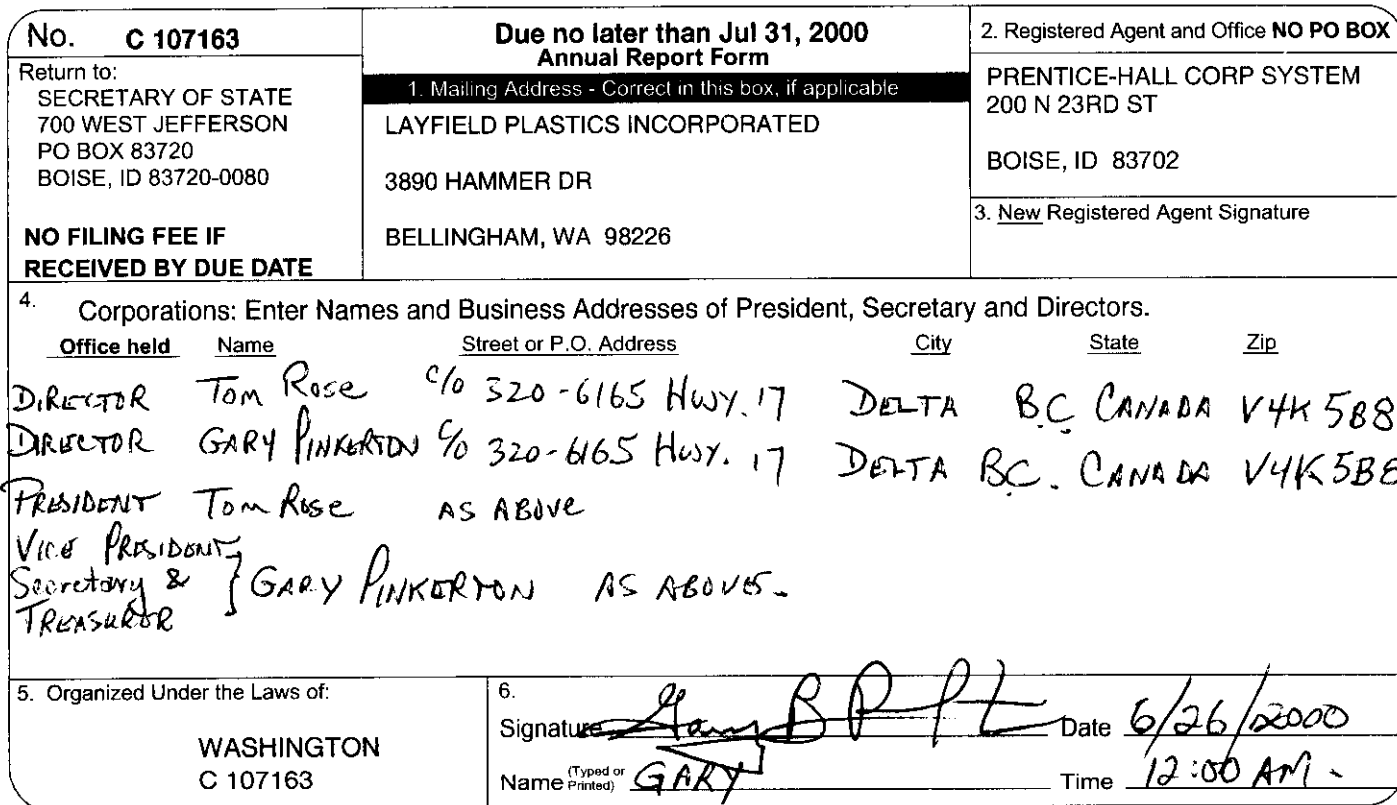 No. C 107163
Return to:
SECRETARY OF STATE
700 WEST JEFFERSON
PO BOX 83720
BOISE, ID 83720-0080
NO FILING FEE IF
RECEIVED BY DUE DATE
Due no later than Jul 31, 2000
Annual Report Form
1. Mailing Address - Correct in this box, if applicable
LAYFIELD PLASTICS INCORPORATED
3890 HAMMER DR
BELLINGHAM, WA 98226
2. Registered Agent and Office NO PO BOX
PRENTICE-HALL CORP SYSTEM
200 N 23RD ST
BOISE, ID 83702
3. New Registered Agent Signature
4. Corporations: Enter Names and Business Addresses of President, Secretary and Directors.
Office held Name Street or P.O. Address City State Zip
DIRECTOR Tom Rose c/o 320-6165 HWY. 17 DELTA B.C. CANADA V4K 5B8
DIRECTOR GARY PINKERTON c/o 320-6165 HWY. 17 DELTA B.C. CANADA V4K 5B8
PRESIDENT Tom Rose AS ABOVE
VICE PRESIDENT,
Secretary & } GARY PINKERTON AS ABOVE.
TREASURER
5. Organized Under the Laws of:
WASHINGTON
C 107163
6.
Signature Gary B Date 6/26/2000
Name (Typed or Printed) GARY Time 12:00 AM.